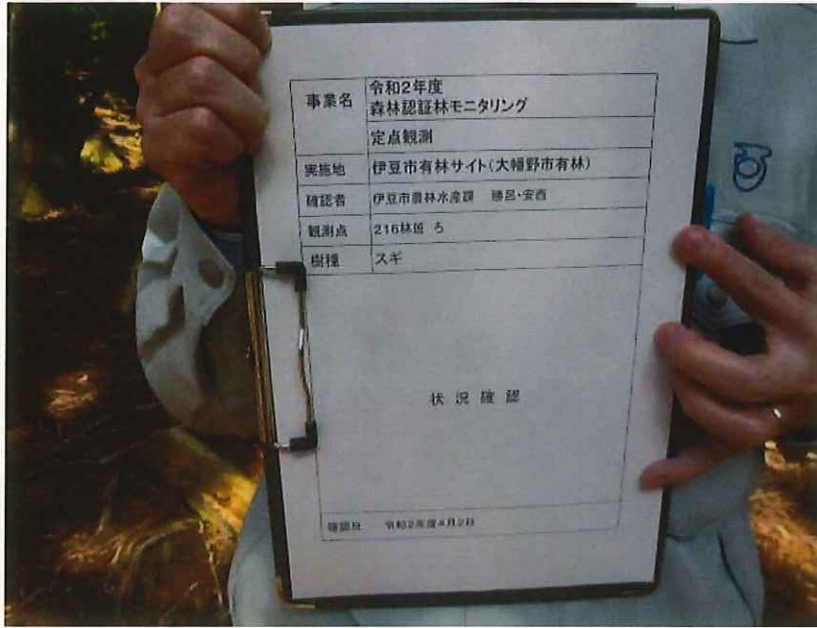 事業名 令和2年度
森林認証林モニタリング
定点観測
実施地 伊豆市有林サイト(大幡野市有林)
確認者 伊豆市農林水産課 勝呂・安西
観測点 216林班 ろ
樹種 スギ
状況確認
確認日 令和2年度4月2日